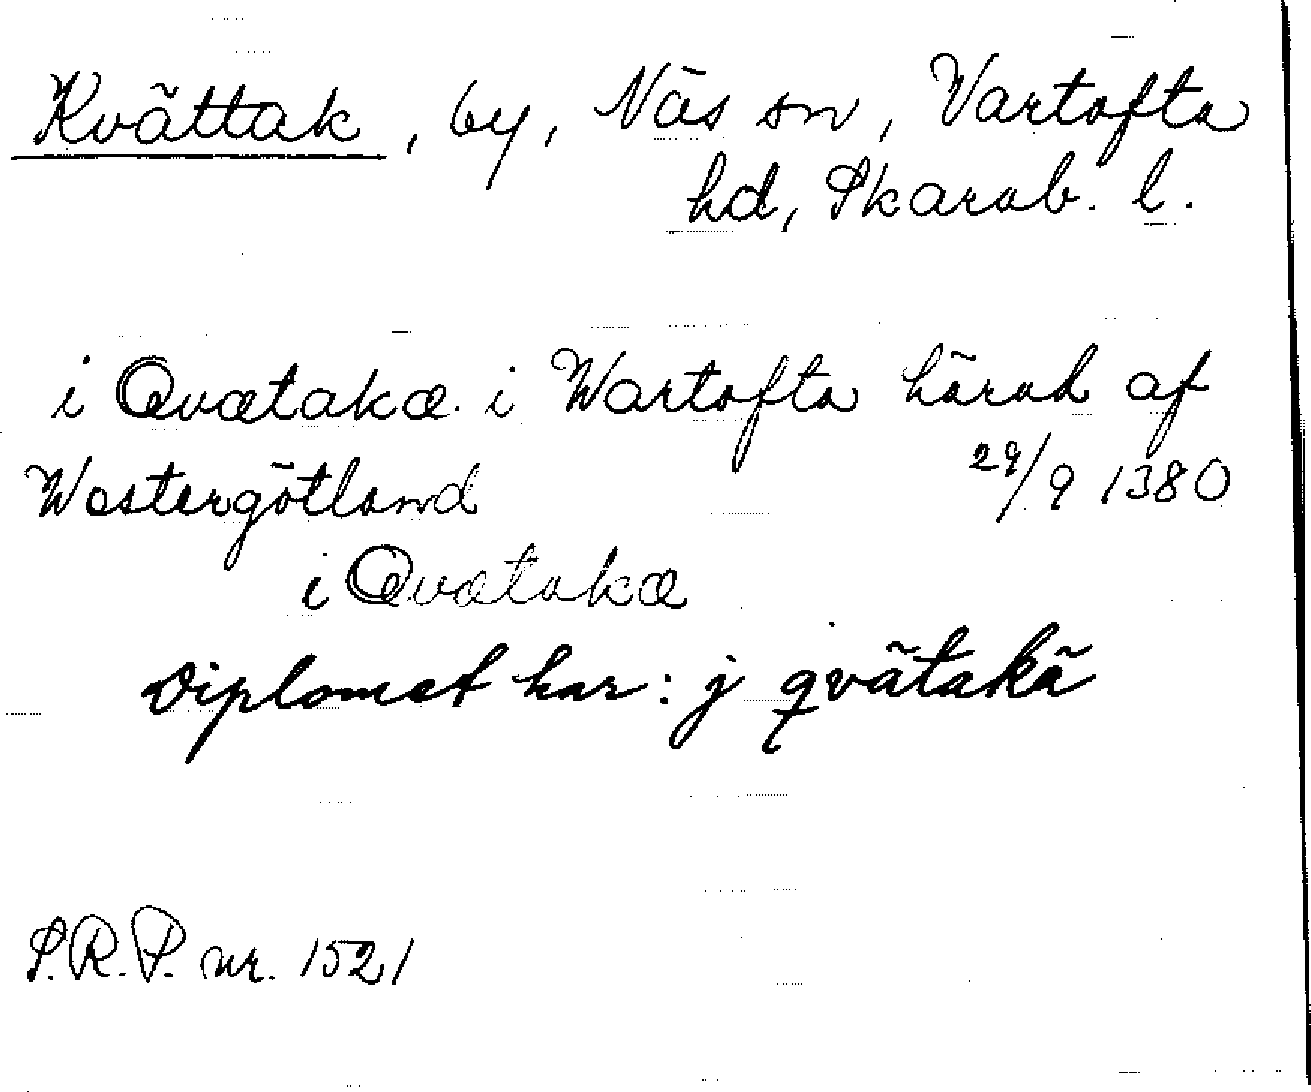 Kvättak, by, Näs sn, Vartofta
hd, Skarab. l.
i Qvætakæ i Wartofta härad af
Westergötland 29/9 1380
i Qvætakæ
Diplomet har: j qvätakä
S.R.P. nr. 1521